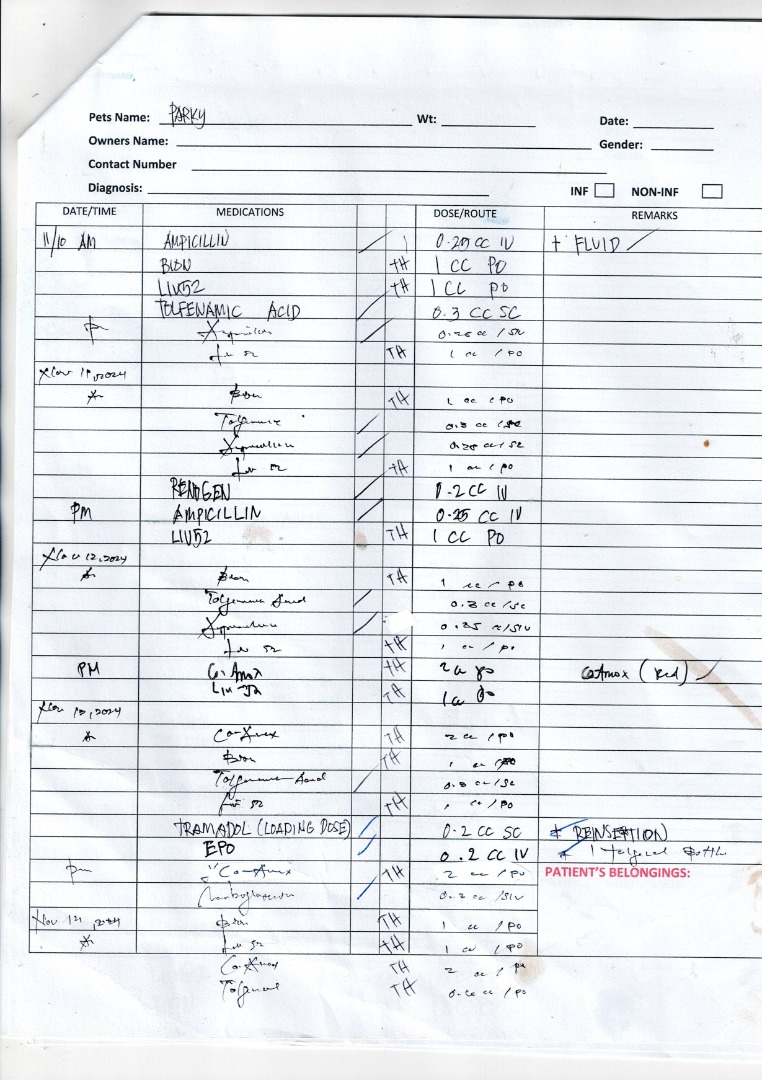 Pets Name: PARKY Wt: Date:
Owners Name: Gender:
Contact Number
Diagnosis: INF NON-INF
DATE/TIME MEDICATIONS DOSE/ROUTE REMARKS
11/10 AM AMPICILLIN 0.25 CC IV + FLUID
BION TH 1 CC PO
LIV52 TH 1 CC PO
TOLFENAMIC ACID 0.3 CC SC
pm 0.25 cc / SIV
Liv 52 TH 1 cc / po
Nov 11, 2024
Bion TH 1 cc / po
0.3 cc / sc
Liv 52 TH 1 cc / po
RENOGEN 0.2 CC IV
PM AMPICILLIN 0.25 CC IV
LIV52 TH 1 CC PO
Nov 12, 2024
Bion TH 1 cc / po
Tolfenamic Acid 0.3 cc / sc
0.25 cc / SIV
Liv 52 TH 1 cc / po
PM Co-Amox TH 2 cc po CoAmox (Red)
Liv-52 TH 1 cc po
Nov 13, 2024
Co-Amox TH 2 cc / po
Bion TH 1 cc / po
Tolfenamic Acid 0.3 cc / sc
Liv 52 TH 1 cc / po
TRAMADOL (LOADING DOSE) 0.2 CC SC * REINSERTION
EPO 0.2 CC IV * 1 Bottle
pm Co-Amox TH 2 cc / po PATIENT'S BELONGINGS:
0.2 cc / SIV
Nov 14, 2024 Bion TH 1 cc / po
Liv 52 TH 1 cc / po
Co-Amox TH 2 cc / po
TH / po